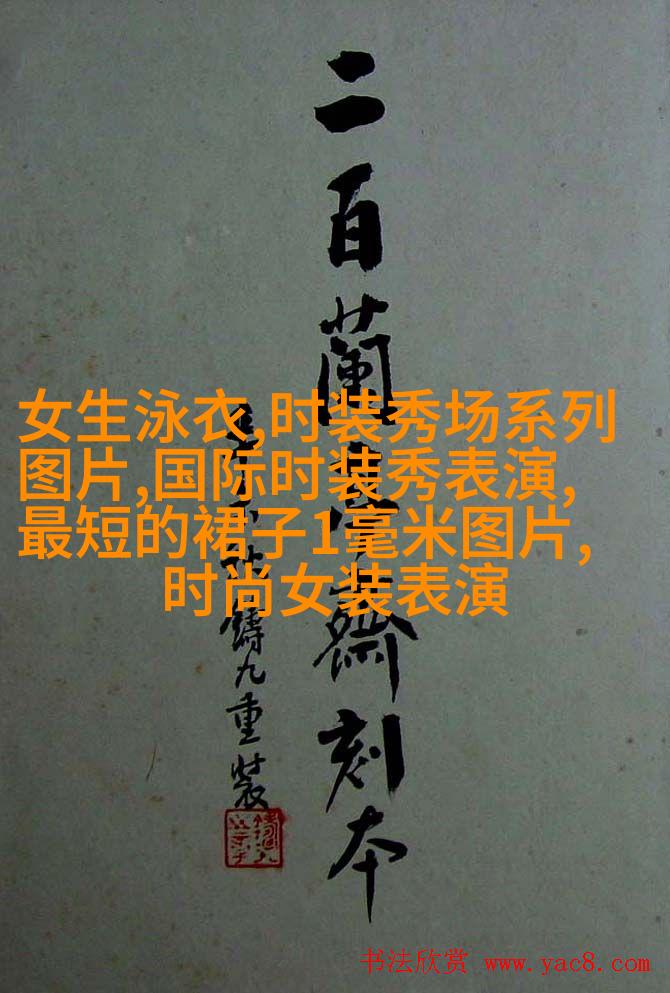 二百蘭亭齋刻本
鑄九重裝
女生泳衣,时装秀场系列
图片,国际时装秀表演,
最短的裙子1毫米图片,
时尚女装表演
书法欣赏 www.yac8.com